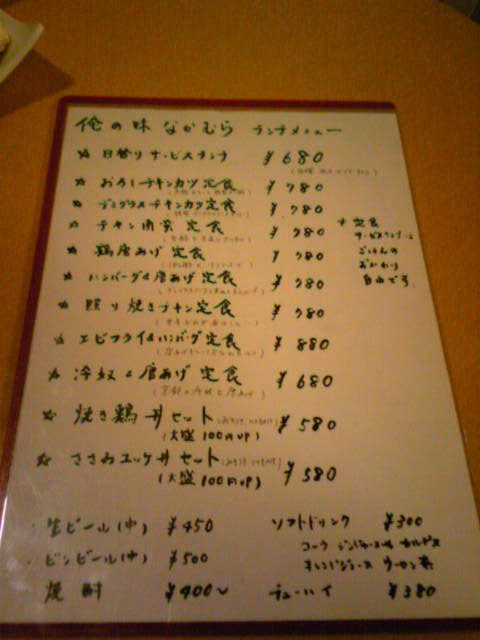 俺の味 なかむら ランチメニュー
☆ 日替りサービスランチ ¥680
☆ おろしチキンカツ定食 ¥780
☆ デミグラスチキンカツ定食 ¥780
☆ チキン南蛮 定食 ¥780
☆ 鶏唐あげ 定食 ¥780
☆ ハンバーグ&唐あげ 定食 ¥780
☆ 照り焼きチキン定食 ¥780
☆ エビフライ&ハンバーグ 定食 ¥880
☆ 冷奴と唐あげ 定食 ¥680
☆ 焼き鶏丼セット ¥580
(大盛 100円UP)
☆ ささみユッケ丼セット ¥580
(大盛 100円UP)
* 定食
サービスランチ
ごはんの
おかわり
自由です
生ビール(中) ¥450
ビンビール(中) ¥500
焼酎 ¥400〜
ソフトドリンク ¥300
コーラ ジンジャーエール カルピス
オレンジジュース ウーロン茶
チューハイ ¥380